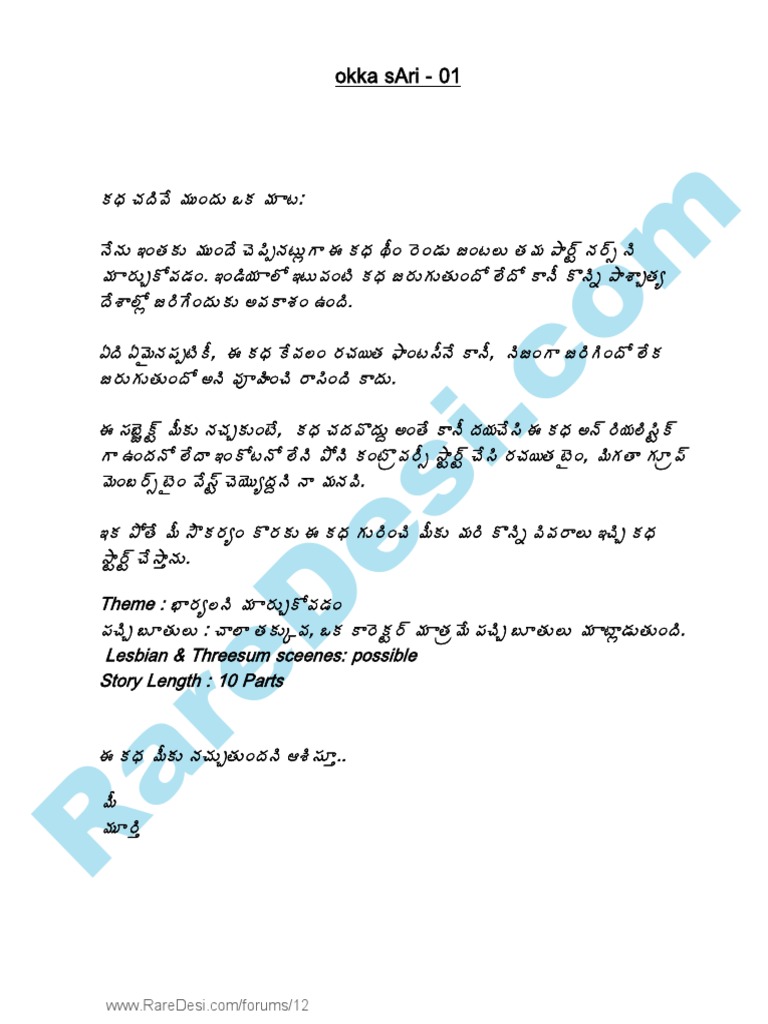 okka sAri - 01
కధ చదివే ముందు ఒక మాట:
నేను ఇంతకు ముందే చెప్పినట్లుగా ఈ కధ థీం రెండు జంటలు తమ పార్ట్ నర్స్ ని
మార్చుకోవడం. ఇండియాలో ఇటువంటి కధ జరుగుతుందో లేదో కానీ కొన్ని పాశ్చాత్య
దేశాల్లో జరిగేందుకు అవకాశం ఉంది.
ఏది ఏమైనప్పటికీ, ఈ కధ కేవలం రచయిత ఫాంటసీనే కానీ, నిజంగా జరిగిందో లేక
జరుగుతుందో అని వూహించి రాసింది కాదు.
ఈ సబ్జెక్ట్ మీకు నచ్చకుంటే, కధ చదవొద్దు అంతే కానీ దయచేసి ఈ కధ అన్ రియలిస్టిక్
గా ఉందనో లేదా ఇంకోటనో లేని పోని కంట్రావర్సీ స్టార్ట్ చేసి రచయిత టైం, మిగతా గ్రూప్
మెంబర్స్ టైం వేస్ట్ చెయ్యొద్దని నా మనవి.
ఇక పోతే మీ సౌకర్యం కొరకు ఈ కధ గురించి మీకు మరి కొన్ని వివరాలు ఇచ్చి కధ
స్టార్ట్ చేస్తాను.
Theme : భార్యలని మార్చుకోవడం
పచ్చి బూతులు : చాలా తక్కువ, ఒక కారెక్టర్ మాత్రమే పచ్చి బూతులు మాట్లాడుతుంది.
Lesbian & Threesum sceenes: possible
Story Length : 10 Parts
ఈ కధ మీకు నచ్చుతుందని ఆశిస్తూ..
మీ
మూర్తి
RareDesi.com
www.RareDesi.com/forums/12